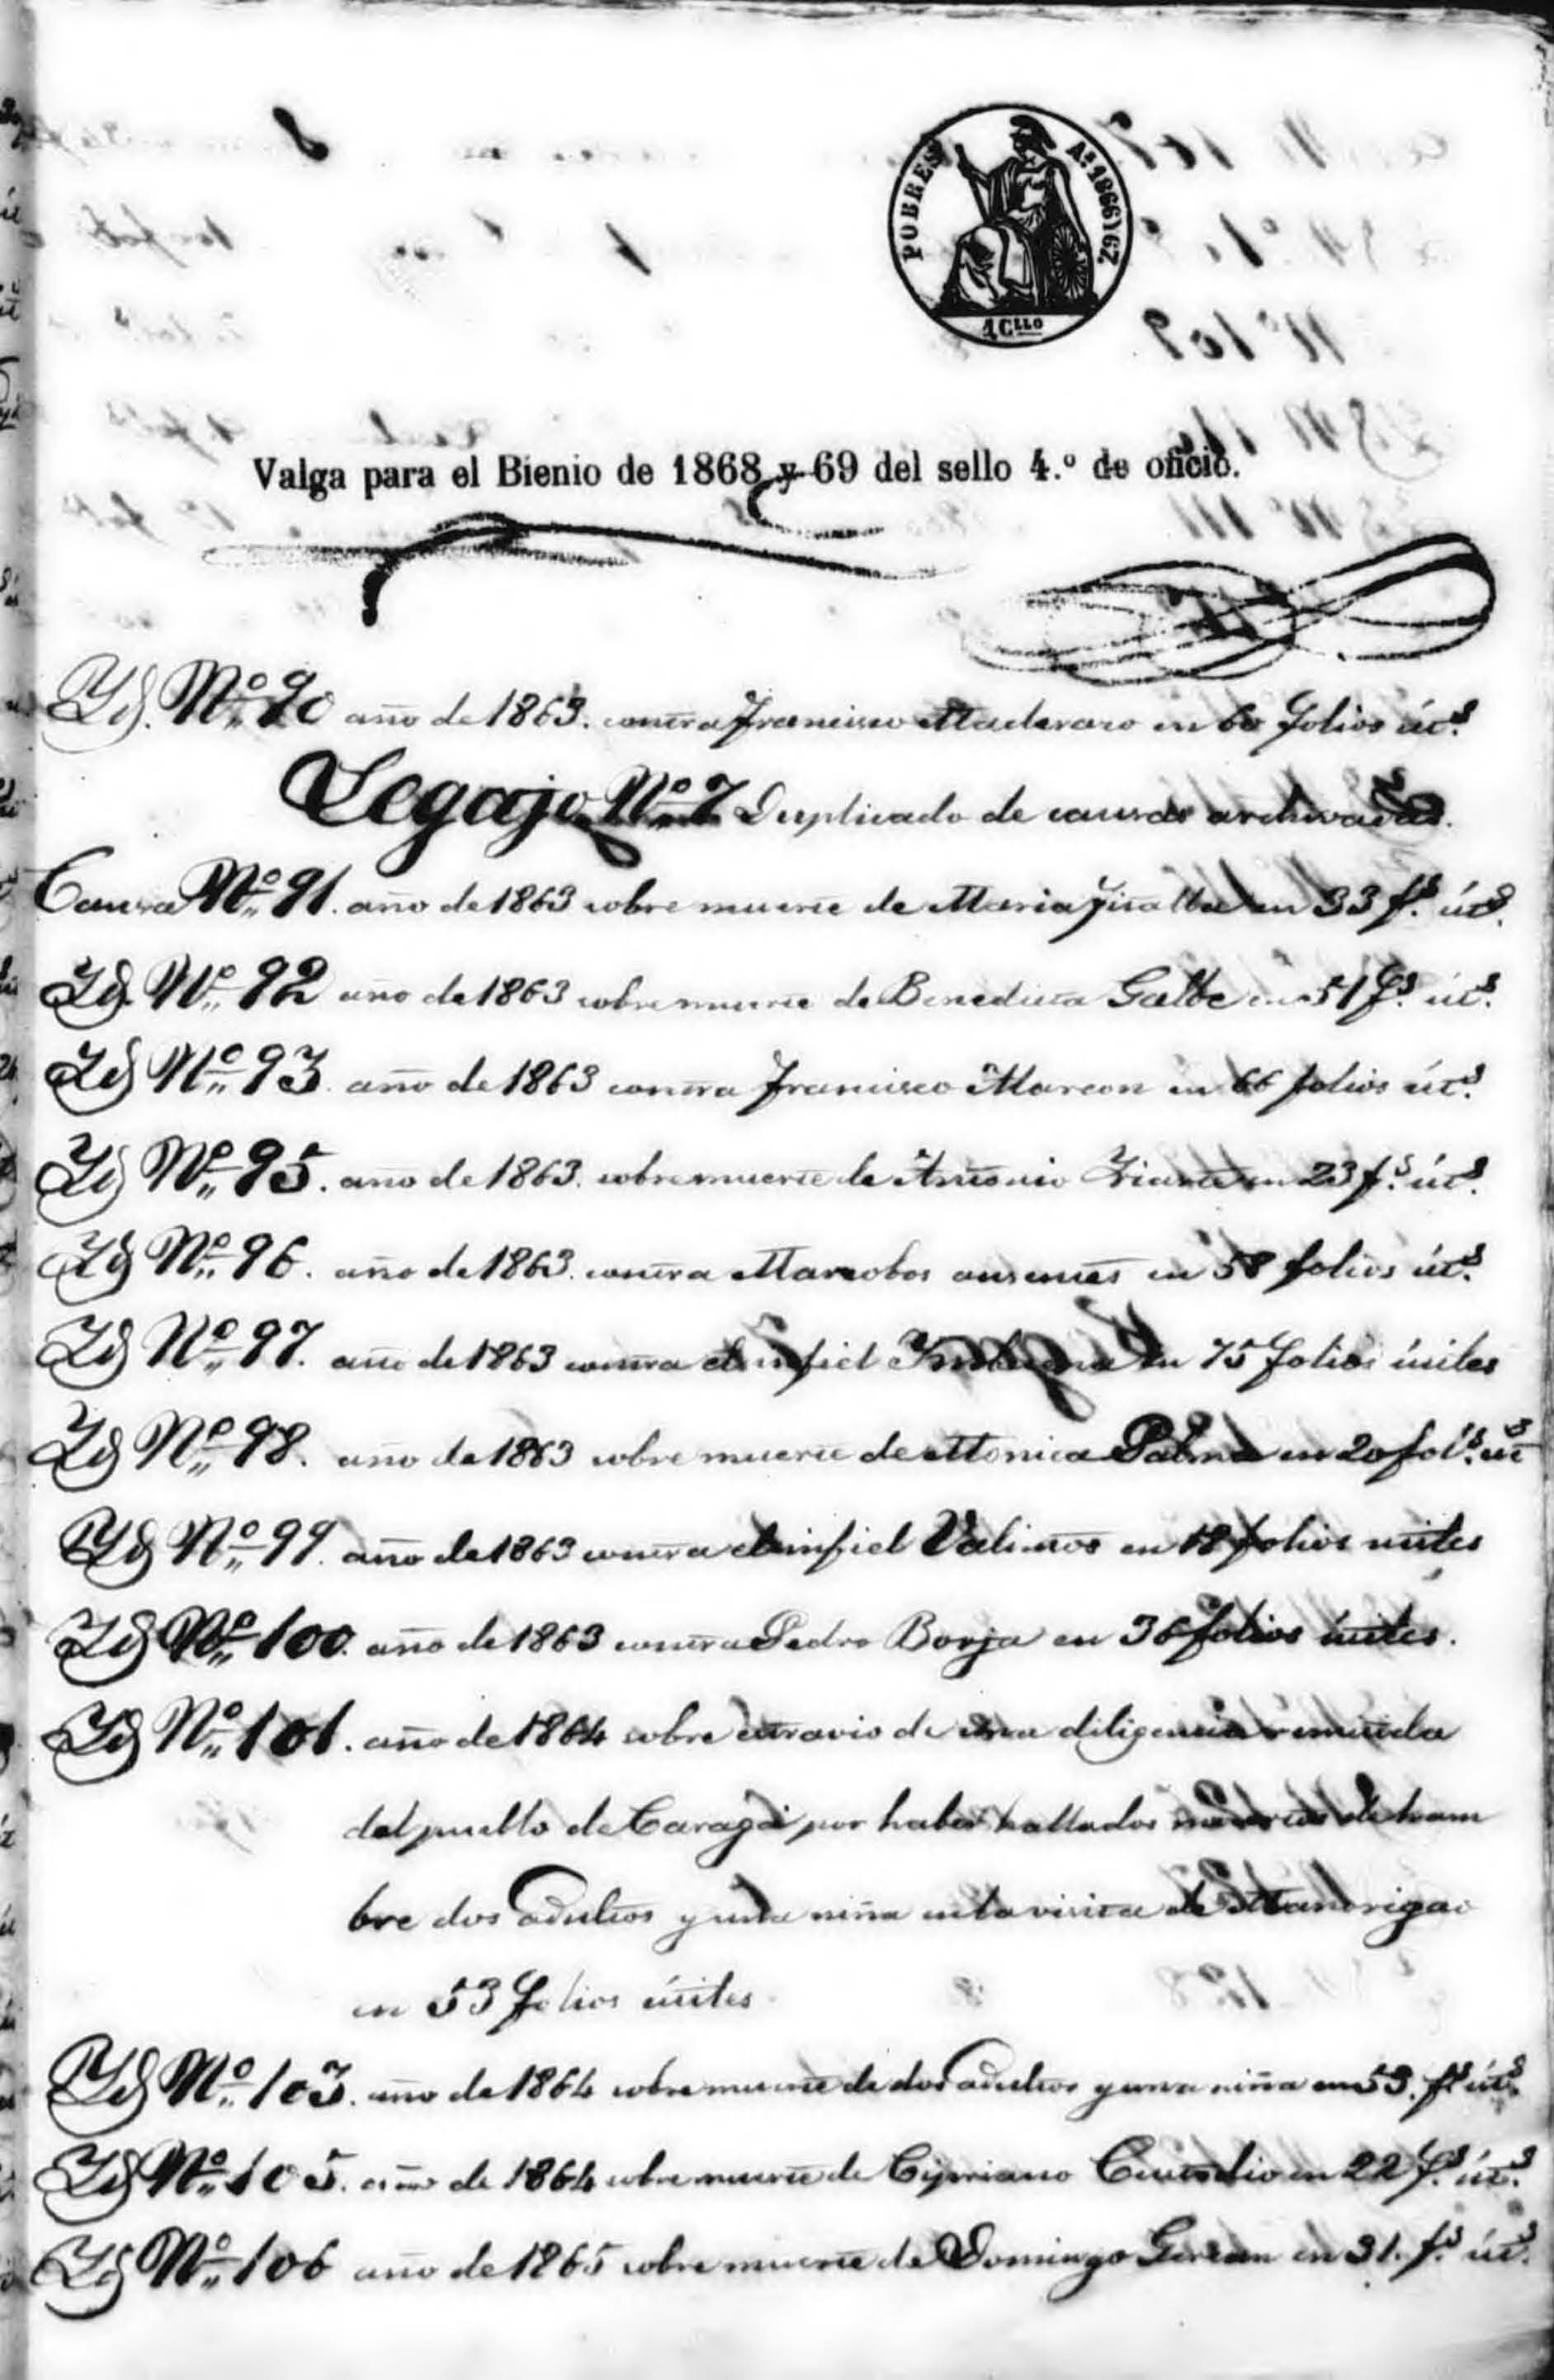 POBRES Aˢ 1866 y 67.
4 Cˡˡᵒ
Valga para el Bienio de 1868 y 69 del sello 4.º de oficio.
Yd. Nº 90 año de 1863. contra Francisco en 60 folios útˢ.
Legajo Nº 7 Duplicado de causas archivadas.
Causa Nº 91. año de 1863 sobre muerte de Maria en 33 fˢ. útˢ.
Yd. Nº 92 año de 1863 sobre muerte de Benedicta en 51 fˢ. útˢ.
Yd Nº 93 año de 1863 contra Francisco Marcon en 66 folios útˢ.
Yd Nº 95. año de 1863. sobre muerte de Antonio en 23 fˢ. útˢ.
Yd Nº 96. año de 1863. contra Marcobos ausentes en 58 folios útˢ.
Yd Nº 97. año de 1863 contra el infiel en 75 folios útiles
Yd Nº 98. año de 1863 sobre muerte de Monica Palma en 20 folˢ. útˢ
Yd Nº 99. año de 1863 contra el infiel en 18 folios utiles
Yd Nº 100. año de 1863 contra Pedro Borja en 36 folios útiles.
Yd Nº 101. año de 1864 sobre estravio de una diligencia remitida
del pueblo de Caraga por haber hallados muertos de ham
bre dos adultos y una niña en la visita de Manorigao
en 53 folios útiles
Yd Nº 103. año de 1864 sobre muerte de dos adultos y una niña en 53. fˢ útˢ.
Yd Nº 105. año de 1864 sobre muerte de Cipriano en 22 fˢ. útˢ.
Yd Nº 106 año de 1865 sobre muerte de Domingo en 31. fˢ. útˢ.